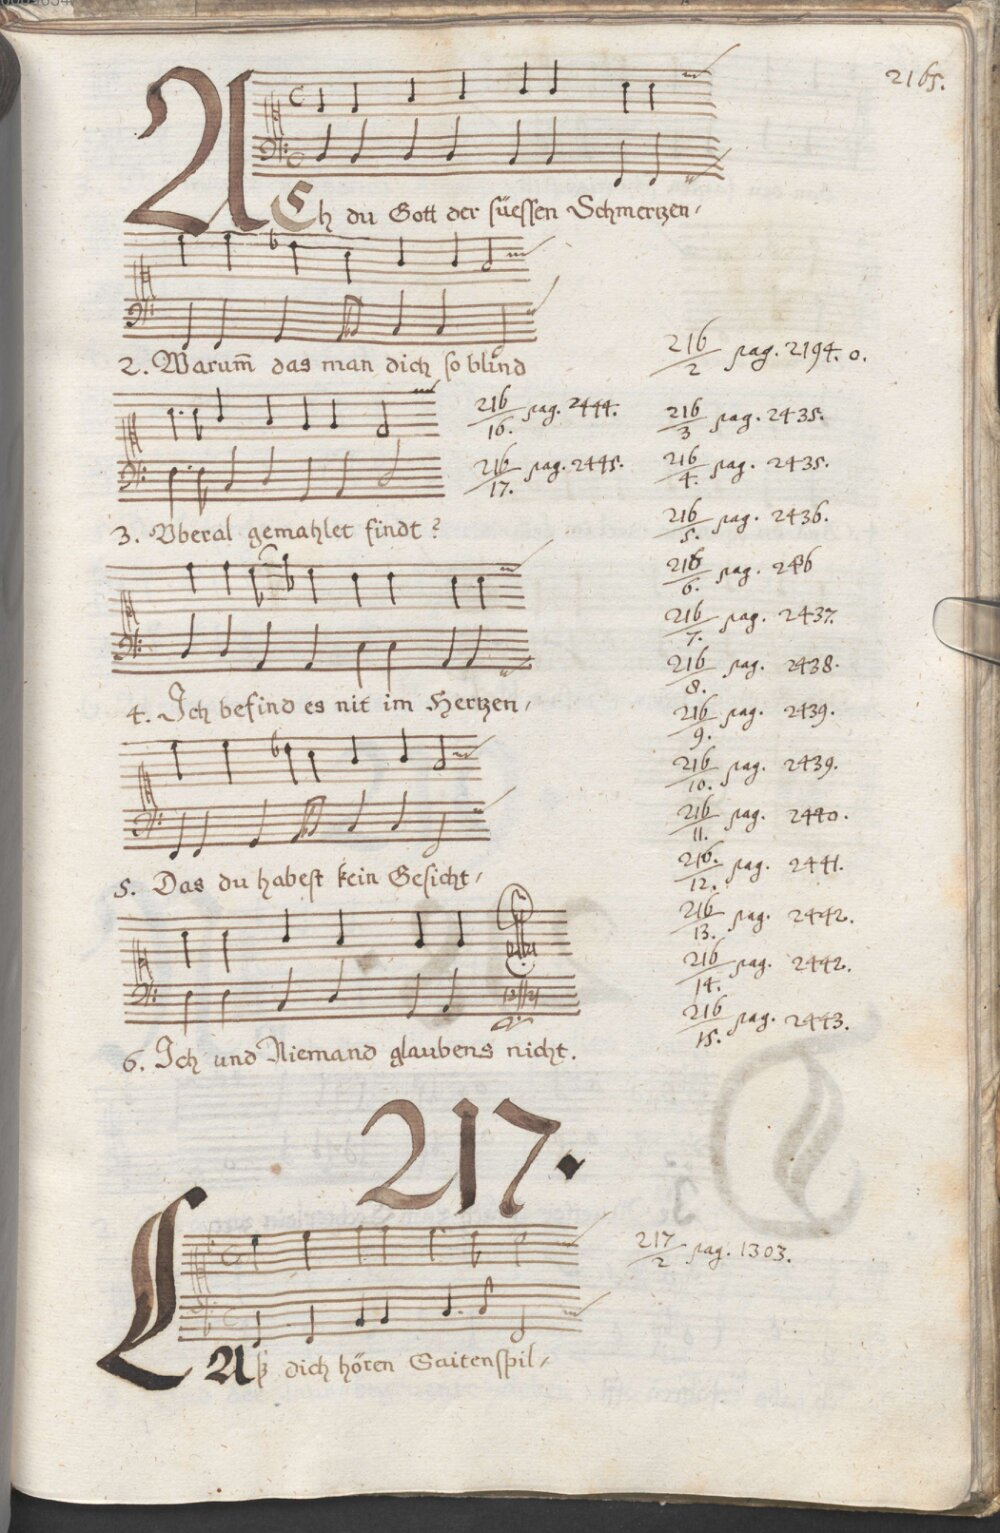 2165.
ACh du Gott der süessen Schmertzen,
2. Warum̄ das man dich so blind
216/2 pag. 2194. o.
216/16. pag. 2444.
216/3 pag. 2435.
216/17. pag. 2445.
216/4. pag. 2435.
3. Vberal gemahlet findt?
216/5. pag. 2436.
216/6. pag.
216/7. pag. 2437.
216/8. pag. 2438.
4. Ich befind es nit im Hertzen,
216/9. pag. 2439.
216/10. pag. 2439.
216/11. pag. 2440.
5. Das du habest kein Gesicht,
216./12. pag. 2441.
216/13. pag. 2442.
216/14. pag. 2442.
216/15. pag. 2443.
6. Ich und Niemand glaubens nicht.
217.
217/2 pag. 1303.
LAß dich hören Saitenspil,